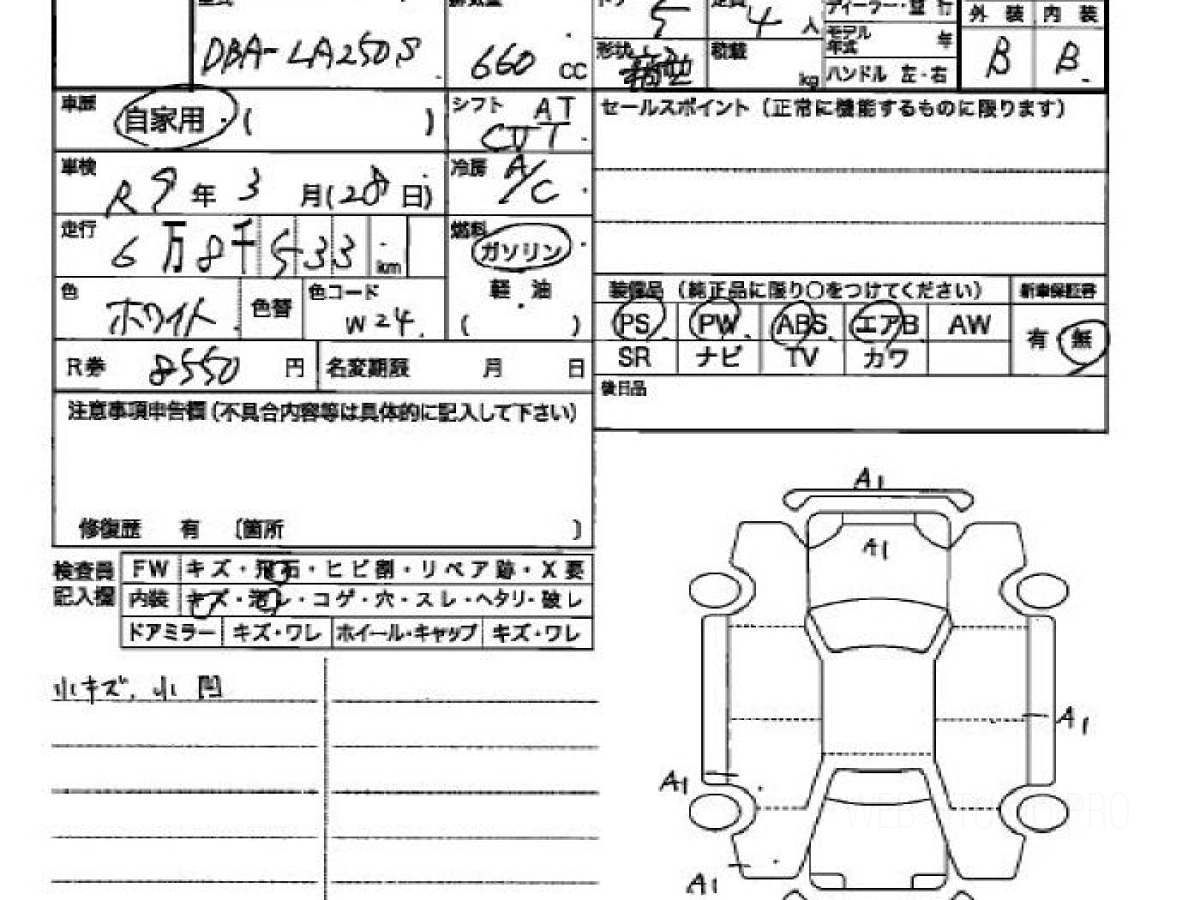 ドア 5 定員 4 人 ディーラー・並行 外装 内装
DBA-LA250S 660 CC 形状 箱型 積載 kg モデル年式 年 B B
ハンドル 左・右
車歴 自家用 ( ) シフト AT CVT セールスポイント (正常に機能するものに限ります)
車検 R9年 3月(28日) 冷房 A/C
走行 6万8千533km 燃料 ガソリン
軽・油
( )
色 ホワイト 色替 色コード W24
装備品 (純正品に限り○をつけてください) 新車保証書
PS PW ABS エアB AW 有・無
SR ナビ TV カワ
R券 8550円 名変期限 月 日
後日品
注意事項申告欄(不具合内容等は具体的に記入して下さい)
修復歴 有 〔箇所 〕
検査員記入欄 FW キズ・飛石・ヒビ割・リペア跡・X要
内装 キズ・汚レ・コゲ・穴・スレ・ヘタリ・破レ
ドアミラー キズ・ワレ ホイール・キャップ キズ・ワレ
小キズ、小凹
A1
A1
A1
A1
A1